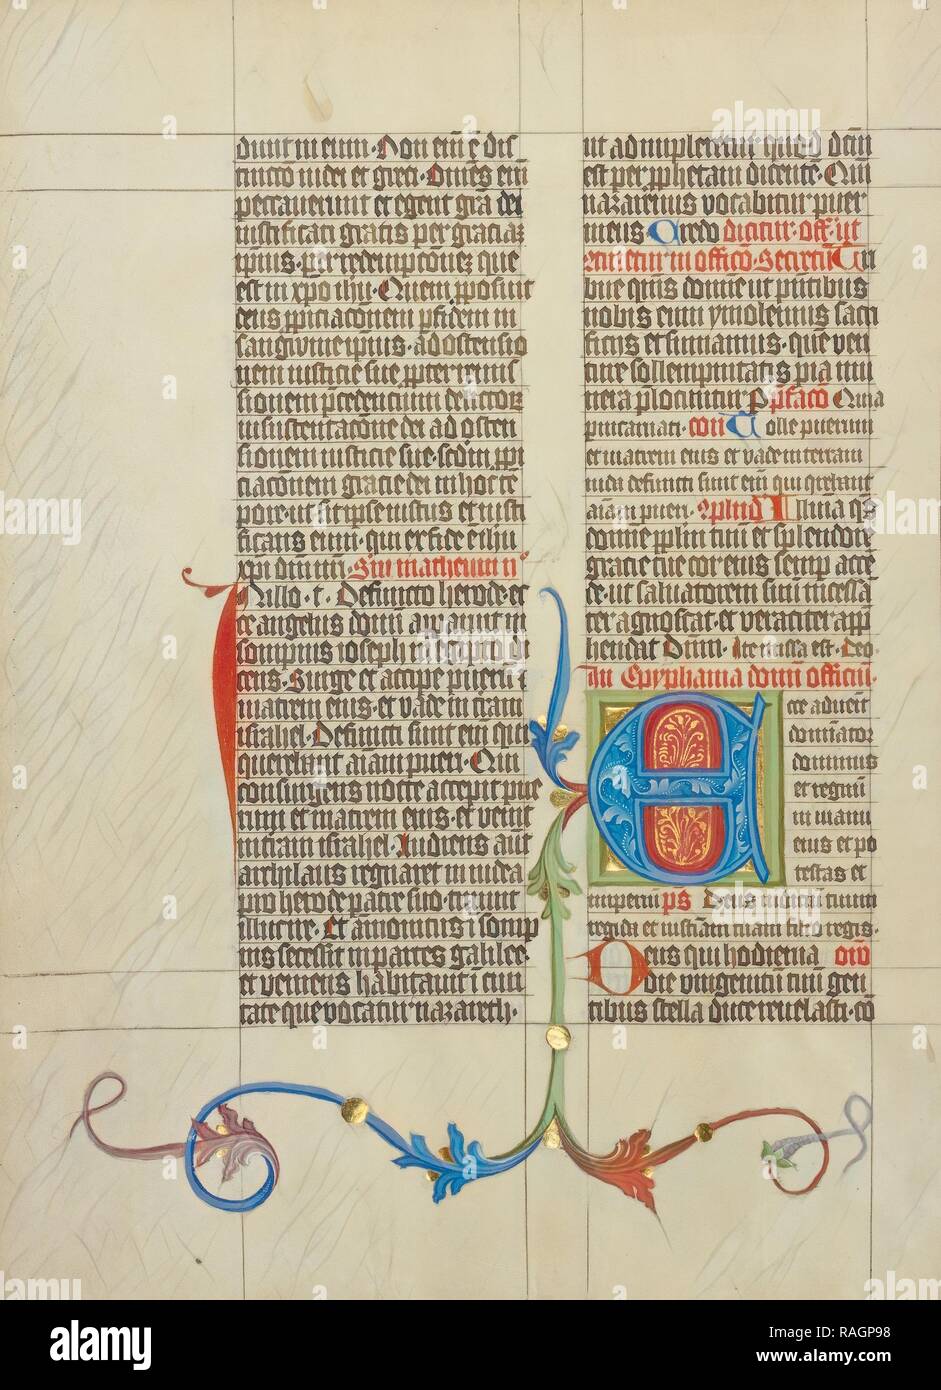 dunt in eum. Non em̄ ē dis
tinctio iudei et greci. Om̄es em̄
peccauerunt et egent gr̄a dei
iustificati gratis per graciā
ipsius. per redempcōem que
est in xpo ihu. Quem ꝓposuit
deus ꝓpiciacōnem ꝑ fidem in
sanguine ipsius. ad ostensio
nem iusticie sue ꝓpter remis
sionem precedencium delictoꝝ
in sustentacōne dei ad osten
sionem iusticie sue. ꝓpi
ciacōnem gracie dei in hoc tē
pore. ut sit ipse iustus et iusti
ficans eum. qui ex fide est ihu
xpi dn̄i nr̄i. Sm̄ matheum
In illo. t. Defuncto herode ec
ce angelus domī apparuit in
sompnis ioseph in egipto di
cens. Surge et accipe puerū ⁊
matrem eius. et vade in terram
israhel. Defuncti sunt em̄ qui
querebant aīam pueri. Qui
consurgens nocte accepit pue
rum et matrem eius. et venit
in terram israhel. Audiens aūt
archilaus regnaret in iudea
pro herode patre suo. timuit
illuc ire. Et amonitus ī somp
nis secessit in partes galilee.
et veniens habitauit ī ciui
tate que vocatur nazareth.
ut adimpleretur quod dc̄m
est per ꝓphetam dicentē. Qm̄
nazarenus vocabitur puer
meus. Credo dicitur. off. ut
continetur in officō. Secretū Un
bue quis domine ut pn̄tibus
nobis eum ymolemus sacri
ficiis et sumamus. que ven
ture sollempnitatis pia mu
nera plocuntur P p̄facō Quia
p incarnati. com Tolle puerum
et matrem eius et vade in terram
iuda defuncti sunt em̄ qui q̄rebant
aīam pueri. ꝯplend Illumīa qs
domine ppl̄m tuū et splendore
gracie tue cor eius semp accē
de. ut saluatorem suū incessā
ter agnoscat. et veraciter appͬ
hendat Dnm̄. Ite missa est. Deo
In Epyphania domī officiū.
Ecce aduenit
domīator
dominus
et regnū
in manu
eius et po
testas et
imperiū ps Deus iudiciū tuum
regi da et iusticiam tuam filio regis.
Deus qui hodierna orō
die vnigenitū tuū gen
tibus stella duce reuelasti. cō
alamy
Image ID: RAGP98
www.alamy.com